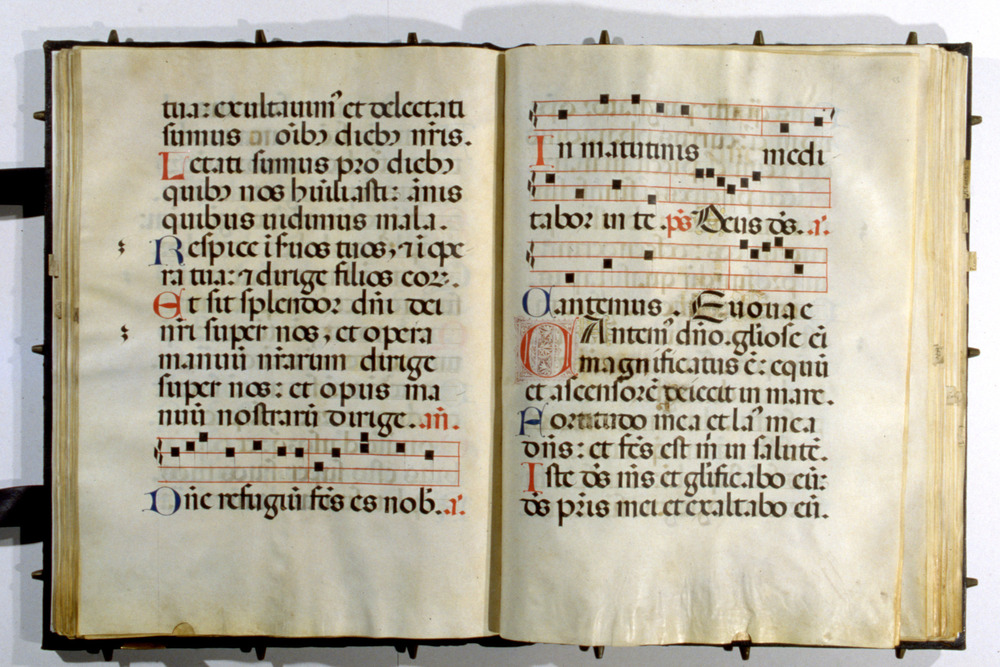 tua: exultauim᷒ et delectati
sumus oībꝫ diebꝫ nr̄is.
Letati sumus pro diebꝫ
quibꝫ nos hūiliasti: ānis
quibus uidimus mala.
Respice ī ẜuos tuos, ⁊ ī ope
ra tua: ⁊ dirige filios eor:.
Et sit splendor dn̄i dei
nr̄i super nos, et opera
manuū nr̄arum dirige
super nos: et opus ma
nuū nostrarū dirige. an̄.
Dn̄e refugiū fc̄s es nob̄. a᷒.
In matutinis medi
tabor in te. ps̄ Deus ds̄. a᷒.
Cantemus. Euouae
CAntem᷒ dn̄o. gl̄iose ei᷒
magnificatus ē: equū
et ascensorē deiecit in mare.
Fortitudo mea et la᷒ mea
dn̄s: et fc̄s est m̄ in salutē.
Iste ds̄ ms̄ et gl̄ificabo eū:
ds̄ pr̄is mei et exaltabo eū.